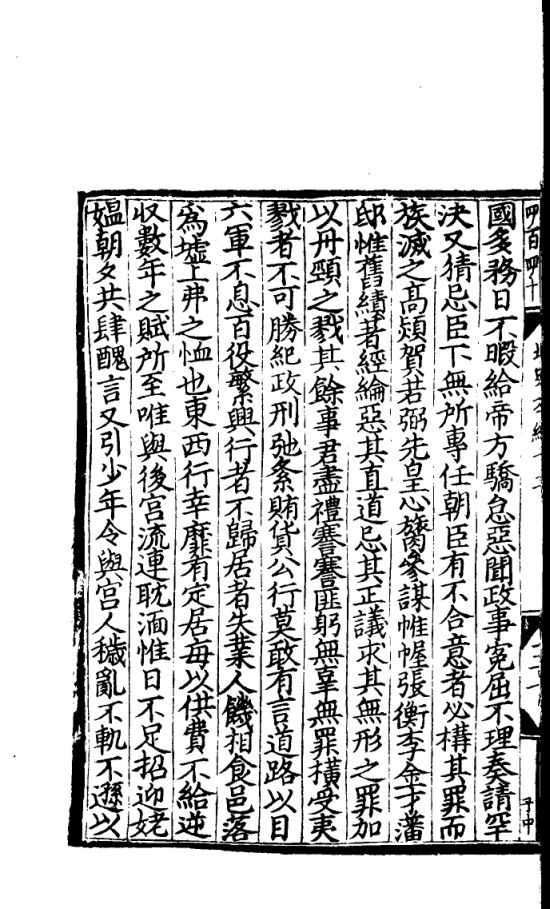 四百四十
國多務日不暇給帝方驕怠惡聞政事寃屈不理奏請罕
決又猜忌臣下無所專任朝臣有不合意者必構其罪而
族滅之高熲賀若弼先皇心膂參謀帷幄張衡李金才藩
邸惟舊績著經綸惡其直道忌其正議求其無形之罪加
以丹頸之戮其餘事君盡禮謇謇匪躬無辜無罪橫受夷
戮者不可勝紀政刑弛紊賄貨公行莫敢有言道路以目
六軍不息百役繁興行者不歸居者失業人饑相食邑落
爲墟上弗之恤也東西行幸靡有定居每以供費不給逆
収數年之賦所至唯與後宮流連耽湎惟日不足招迎姥
媼朝夕共肆醜言又引少年令與宮人穢亂不軌不遜以